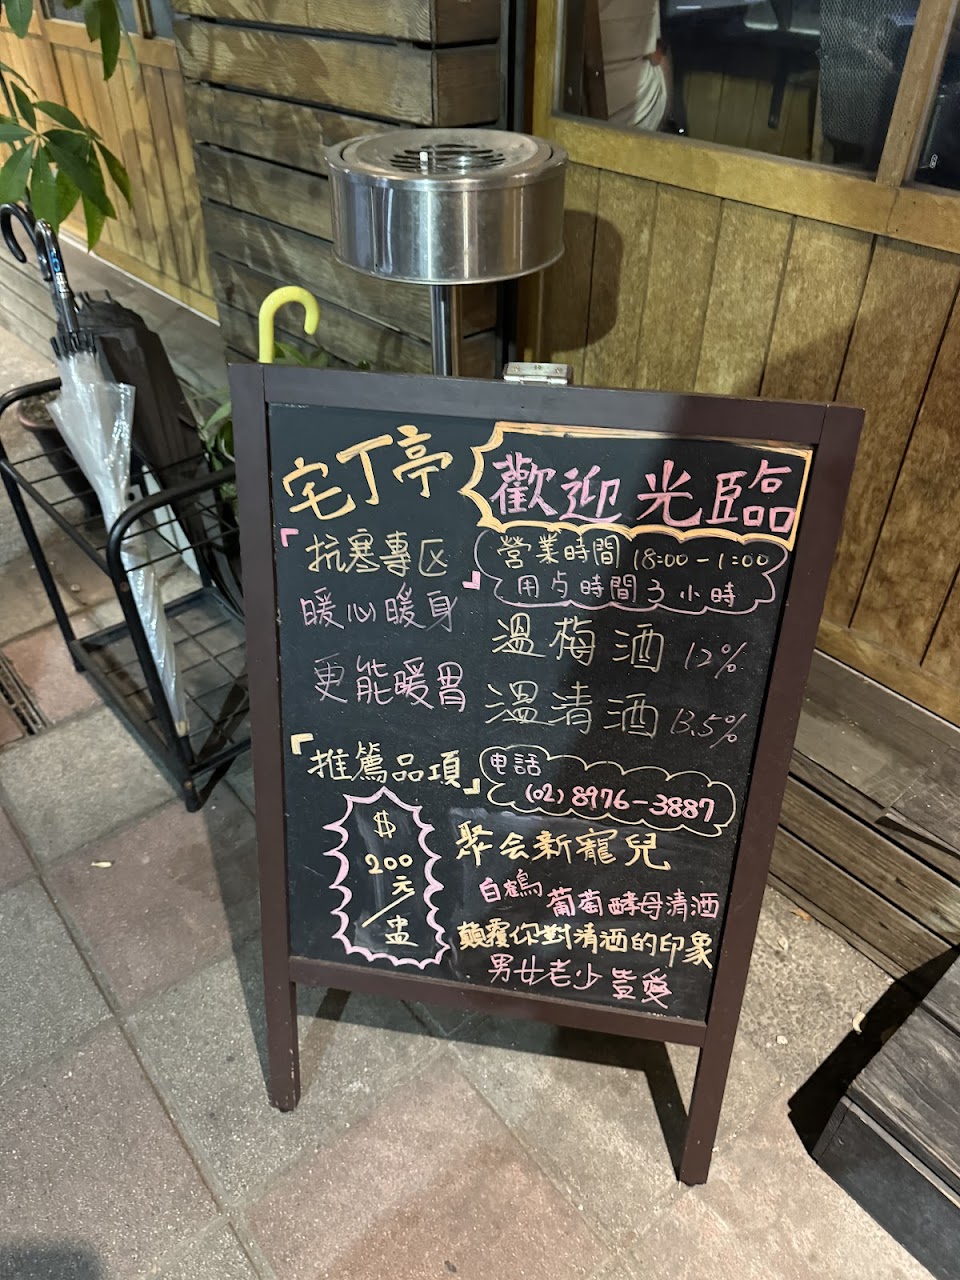 宅丁亭
歡迎光臨
「抗寒專区」
暖心暖身
更能暖胃
營業時間 18:00-1:00
用占時間3小時
溫梅酒 12%
溫清酒 13.5%
「推薦品項」
电話
(02) 8976-3887
$
200
元
/
盅
聚会新寵兒
白鶴 葡萄酵母清酒
顛覆你對清酒的印象
男女老少皆愛